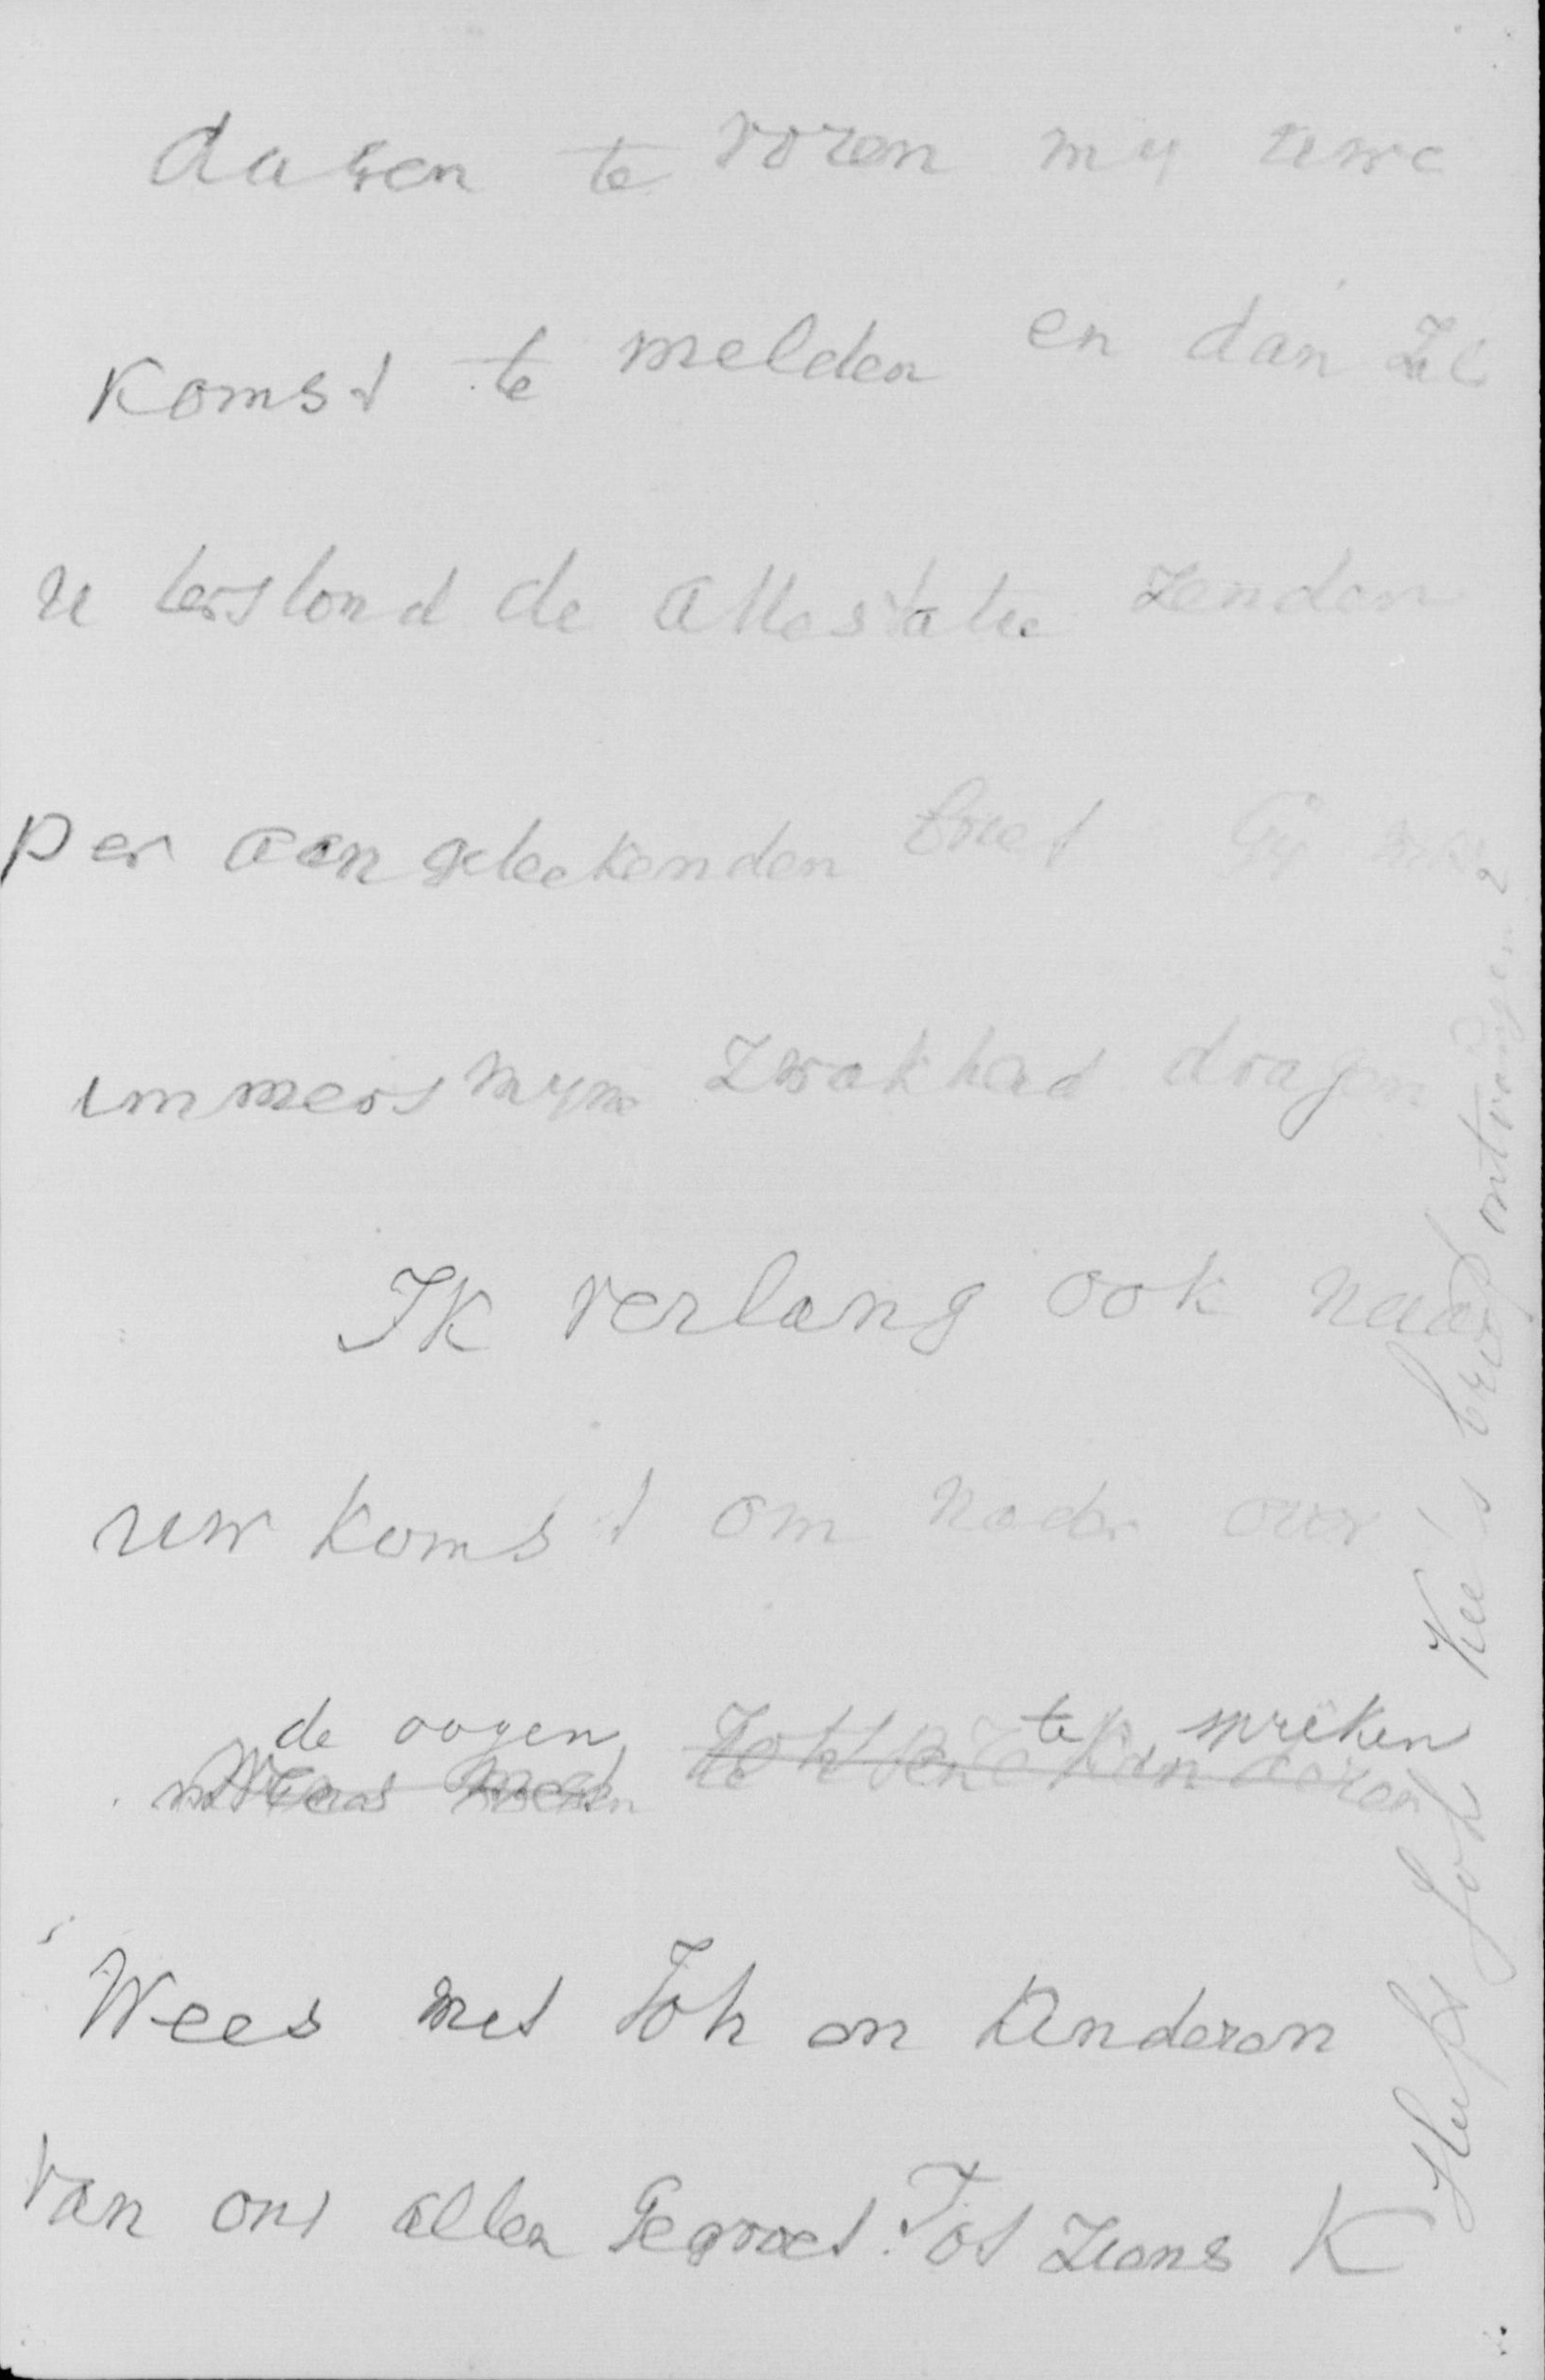 dagen te voren my uwe
Komst te melden en dan Zal
u terstond de attestatie zenden
Per aangeteekenden brief Gij
immers myne Zwakheid dragen
Ik verlang ook naar
uw komst om nader over
de oogen te spreken
Wees met Joh en Kinderen
van ons allen Gegroet. Tot Ziens K
Joh Kee's brief ontvangen?